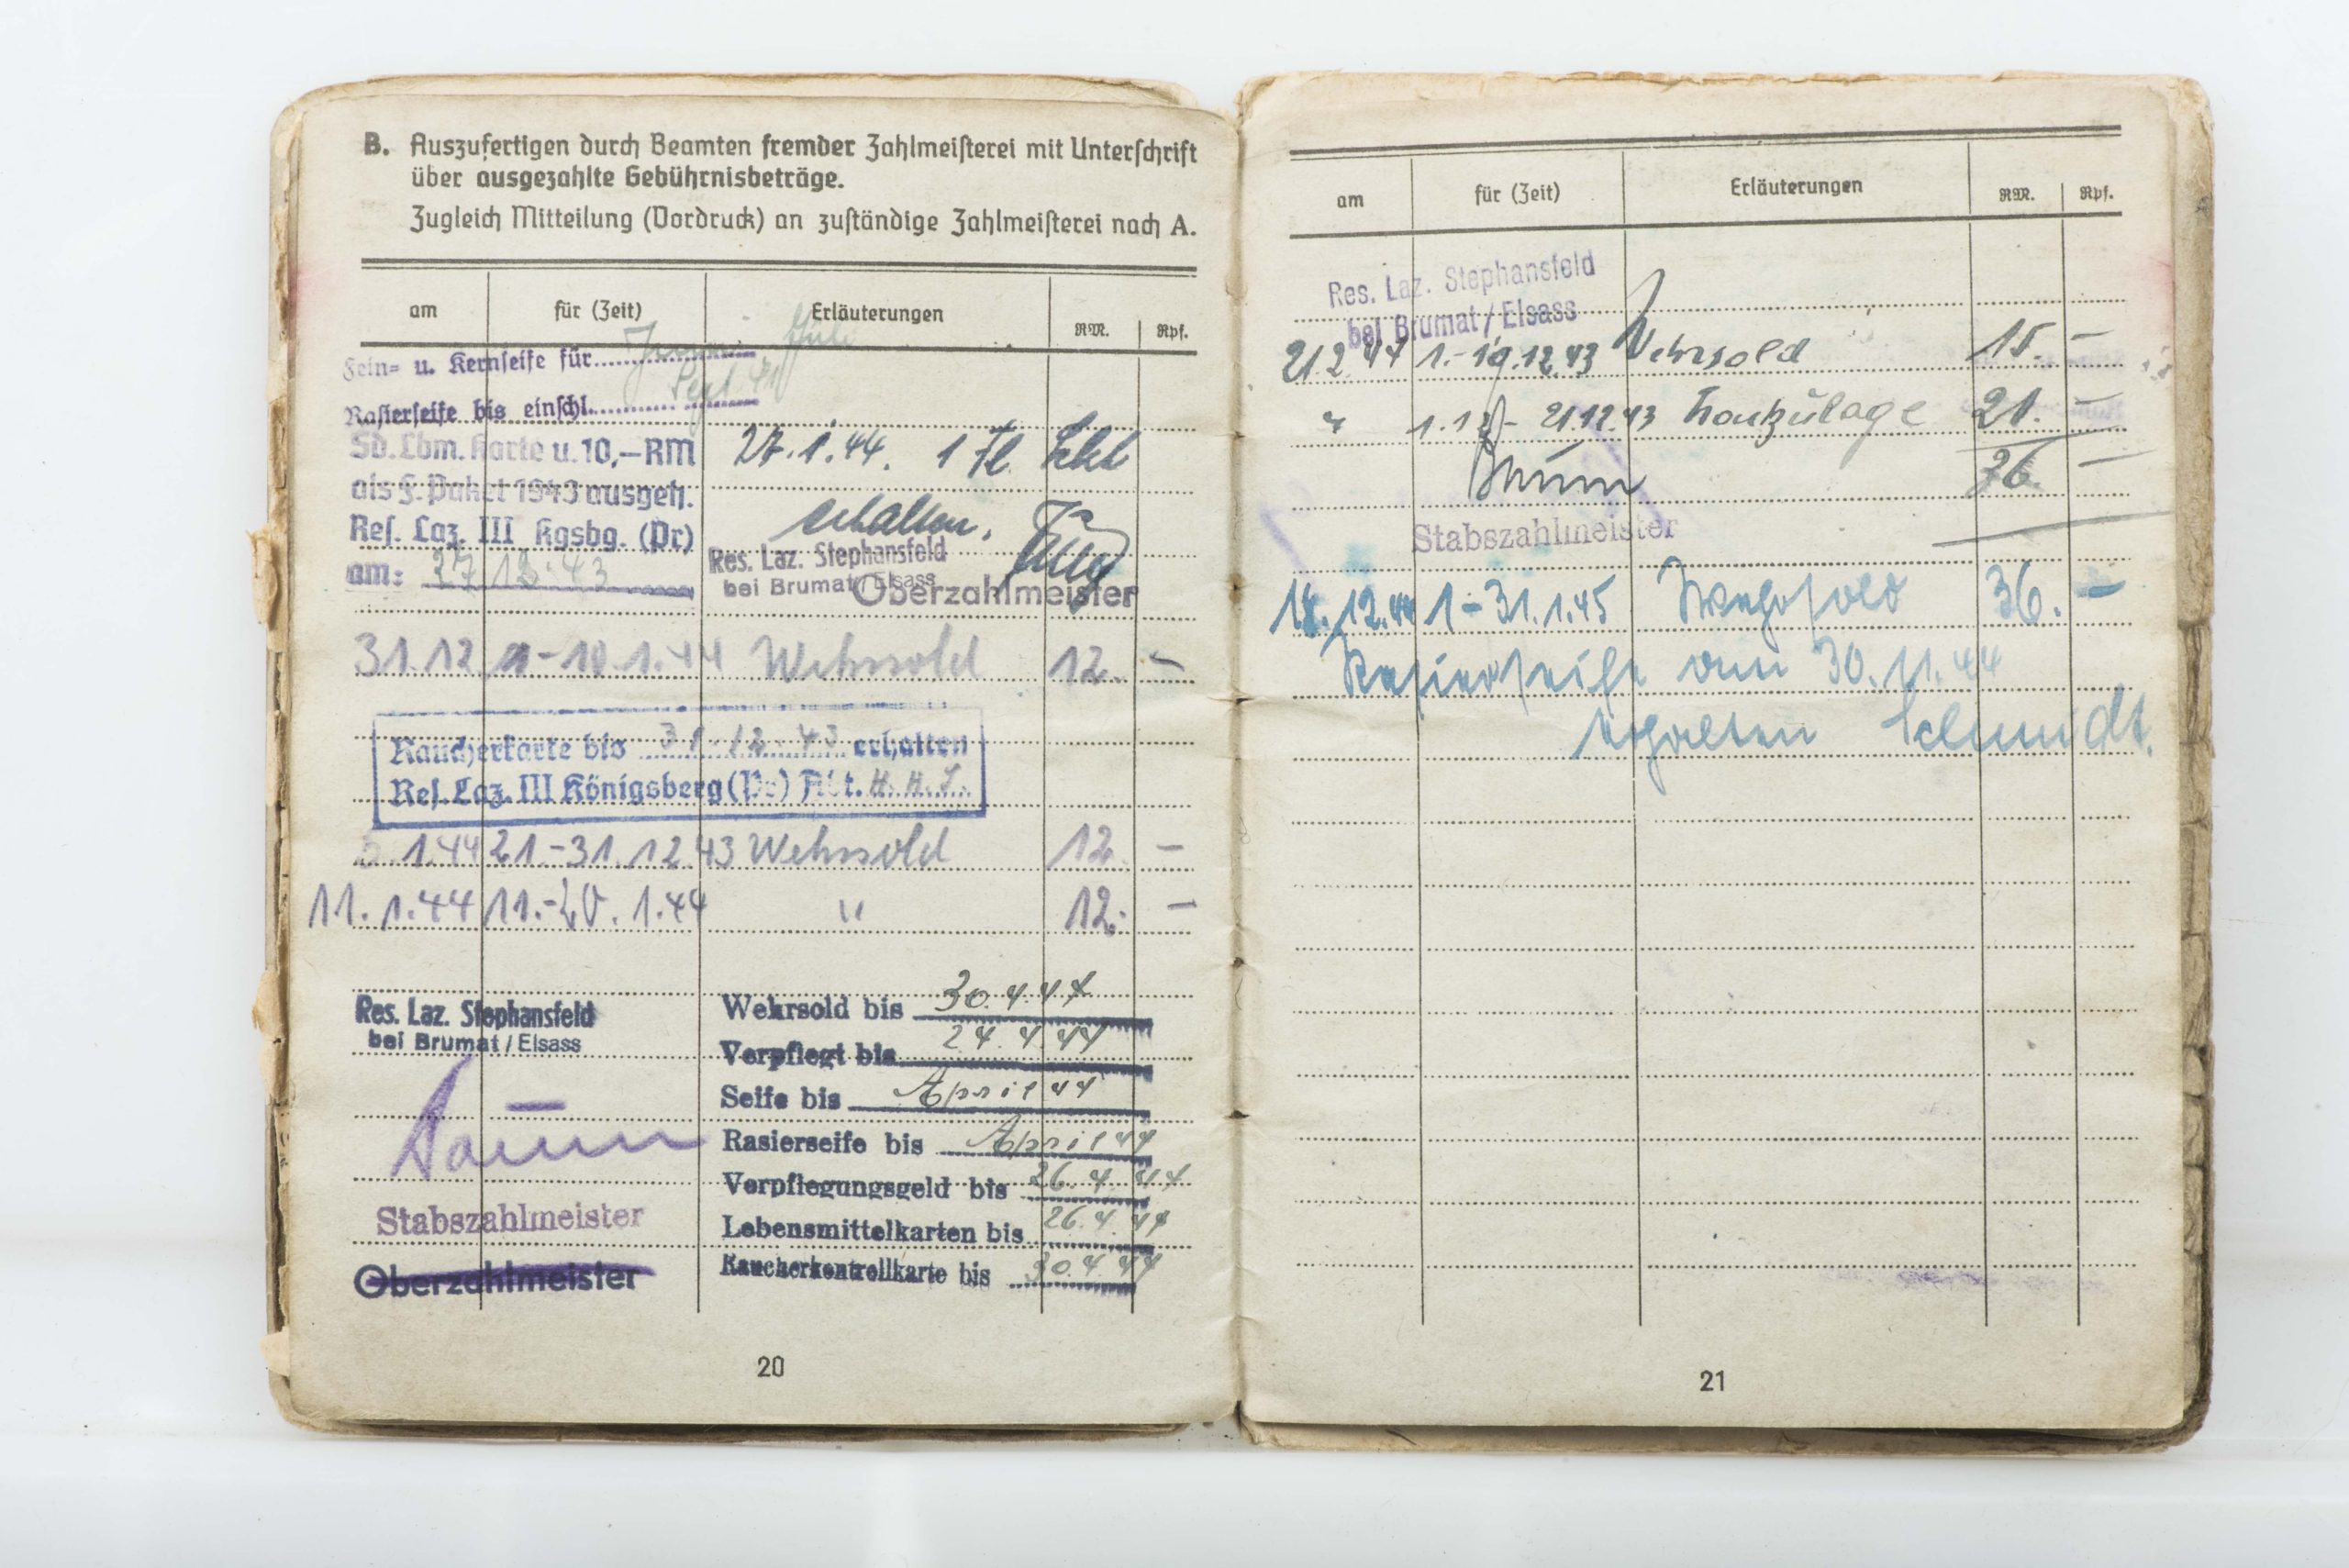 B. Auszufertigen durch Beamten fremder Zahlmeisterei mit Unterschrift
über ausgezahlte Gebührnisbeträge.
Zugleich Mitteilung (Vordruck) an zuständige Zahlmeisterei nach A.
am für (Zeit) Erläuterungen RM. Rpf.
Fein- u. Kernseife für Juli
Sept.
Rasierseife bis einschl.
Sd. Lbm. Karte u. 10,–RM
als F. Paket 1943 ausgeh.
Res. Laz. III Kgsbg. (Pr)
am: 27 12. 43
27.1.44. 1 Fl. Sekt
erhalten.
Res. Laz. Stephansfeld
bei Brumat/Elsass
Oberzahlmeister
31.12. 1-10.1.44 Wehrsold 12. –
Raucherkarte bis 31.12.43 erhalten
Res. Laz. III Königsberg (Pr) Abt. H. H. S.
5.1.44 21.-31.12.43 Wehrsold 12. –
11.1.44 11.-20.1.44 " 12. –
Res. Laz. Stephansfeld
bei Brumat/Elsass
Stabszahlmeister
Oberzahlmeister
Wehrsold bis 30.4.44
Verpflegt bis 24.4.44
Seife bis April 44
Rasierseife bis April 44
Verpflegungsgeld bis 26.4.44
Lebensmittelkarten bis 26.4.44
Raucherkontrollkarte bis 30.4.44
20
am für (Zeit) Erläuterungen RM. Rpf.
Res. Laz. Stephansfeld
bei Brumat/Elsass
21.2.44 1.-19.12.43 Wehrsold 15. –
" 1.12.- 21.12.43 Frontzulage 21. –
36. –
Stabszahlmeister
18.12.44 1-31.1.45 Wehrsold 36. –
Rasierseife am 30.11.44
erhalten Schmidt.
21